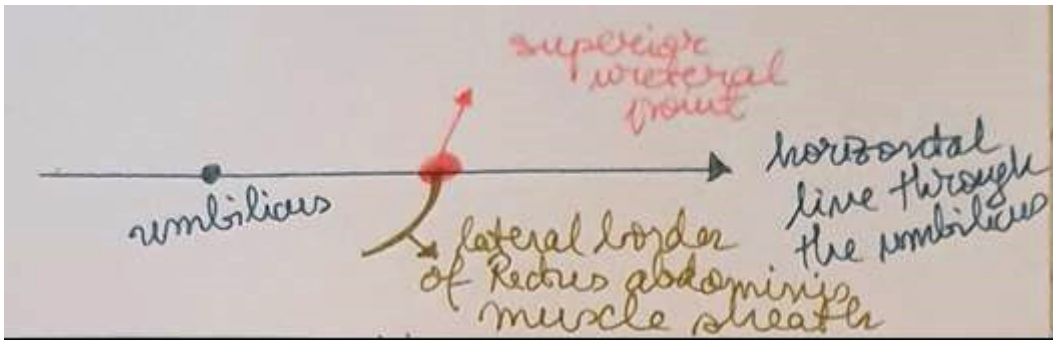 superior
ureteral
point
umbilicus
horizontal
line through
the umbilicus
lateral border
of Rectus abdominis
muscle sheath